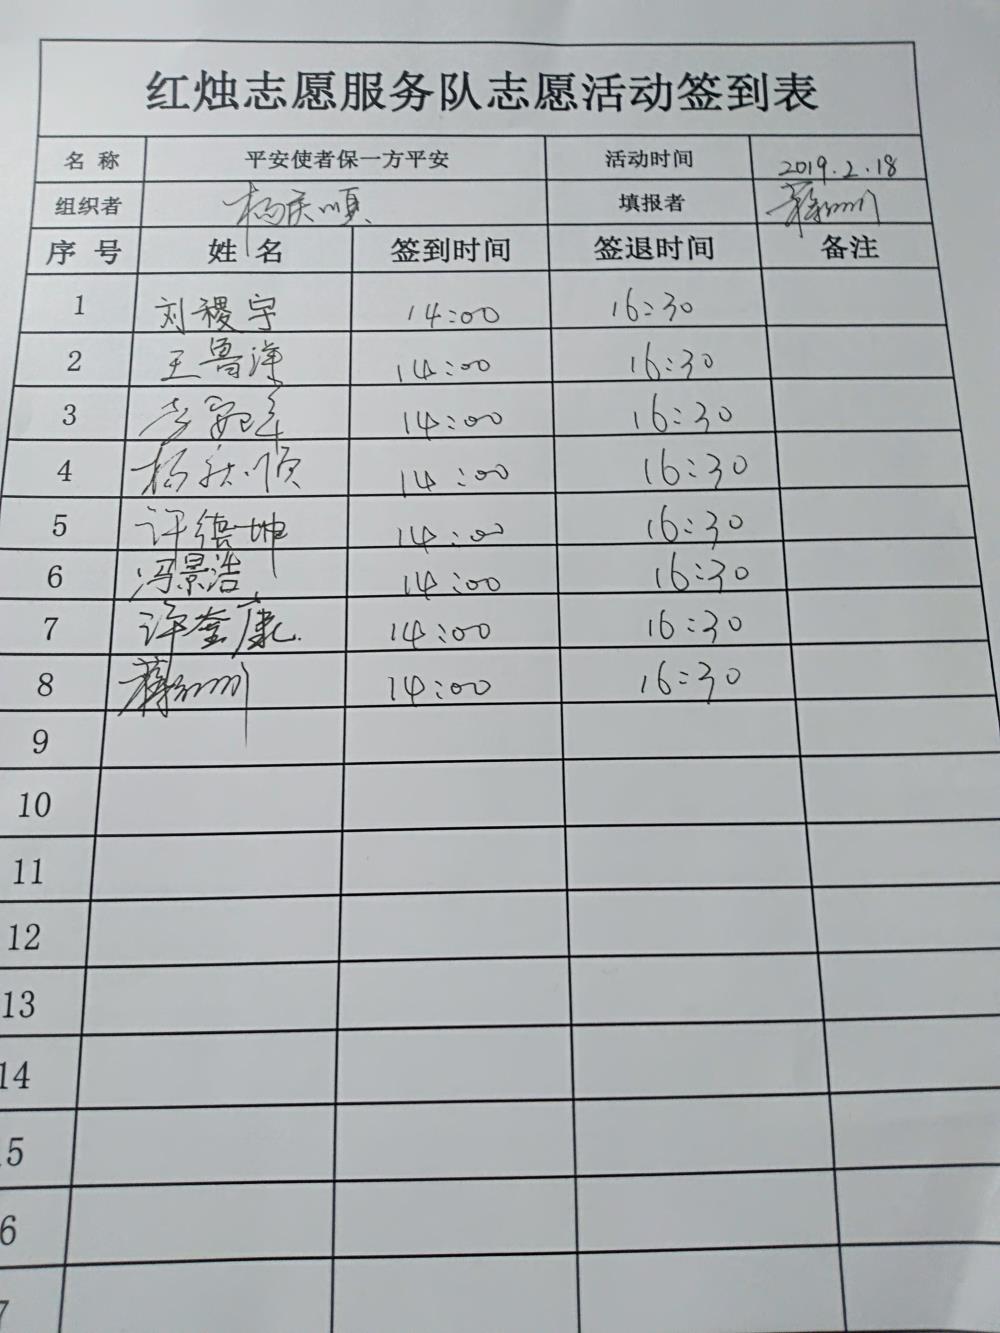 红烛志愿服务队志愿活动签到表
名 称 平安使者保一方平安 活动时间 2019.2.18
组织者 杨庆顺 填报者
序 号 姓 名 签到时间 签退时间 备注
1 刘稷宇 14:00 16:30
2 王鲁洋 14:00 16:30
3 14:00 16:30
4 杨秋顺 14:00 16:30
5 许德坤 14:00 16:30
6 冯景浩 14:00 16:30
7 许奎康 14:00 16:30
8 14:00 16:30
9
10
11
12
13
14
15
16
17